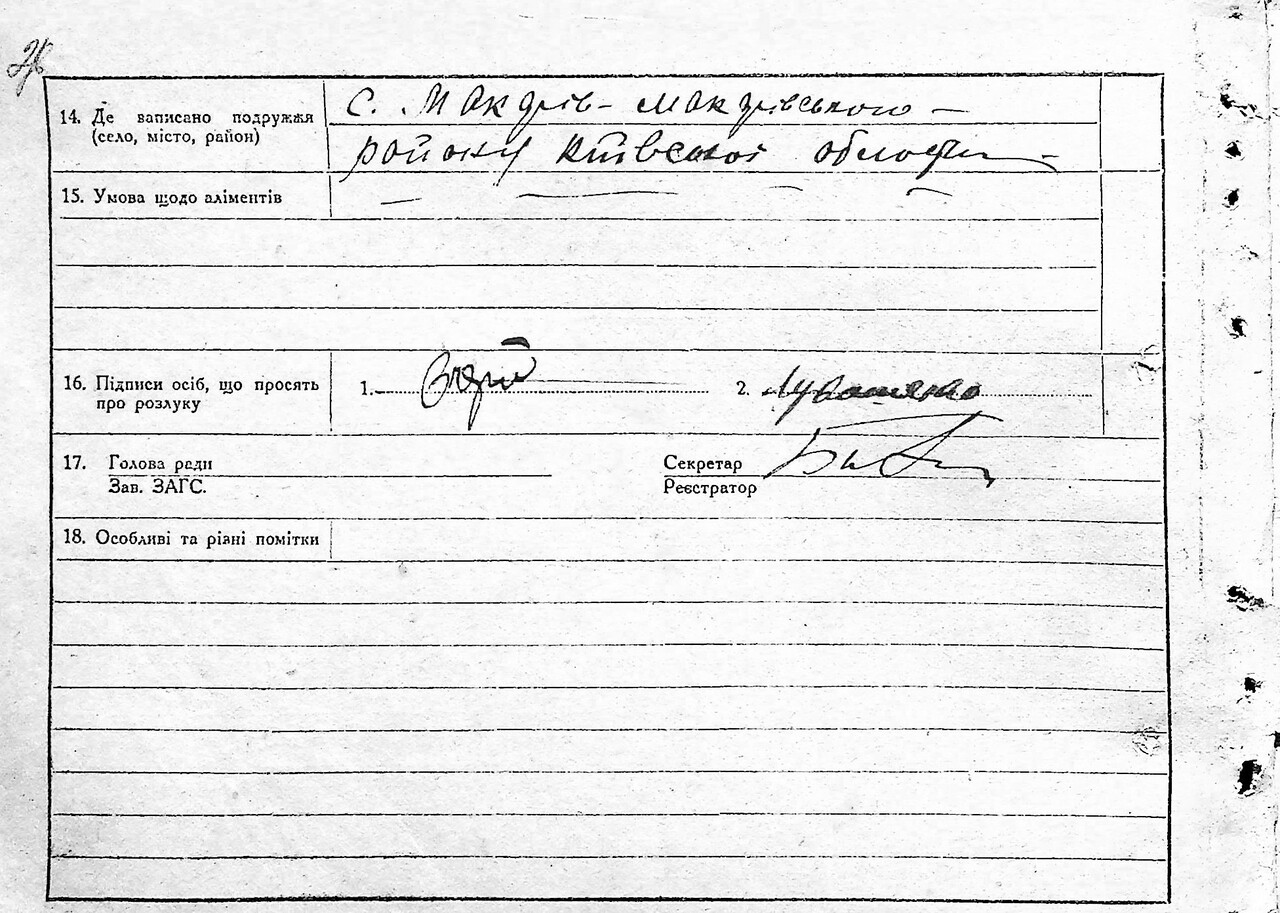 14. Де записано подружжя
(село, місто, район)
с. Макарів - Макарівського -
району Київської області -
15. Умова щодо аліментів
— — — —
16. Підписи осіб, що просять
про розлуку
1.
2.
17. Голова ради
Зав. ЗАГС.
Секретар
Реєстратор
18. Особливі та різні помітки